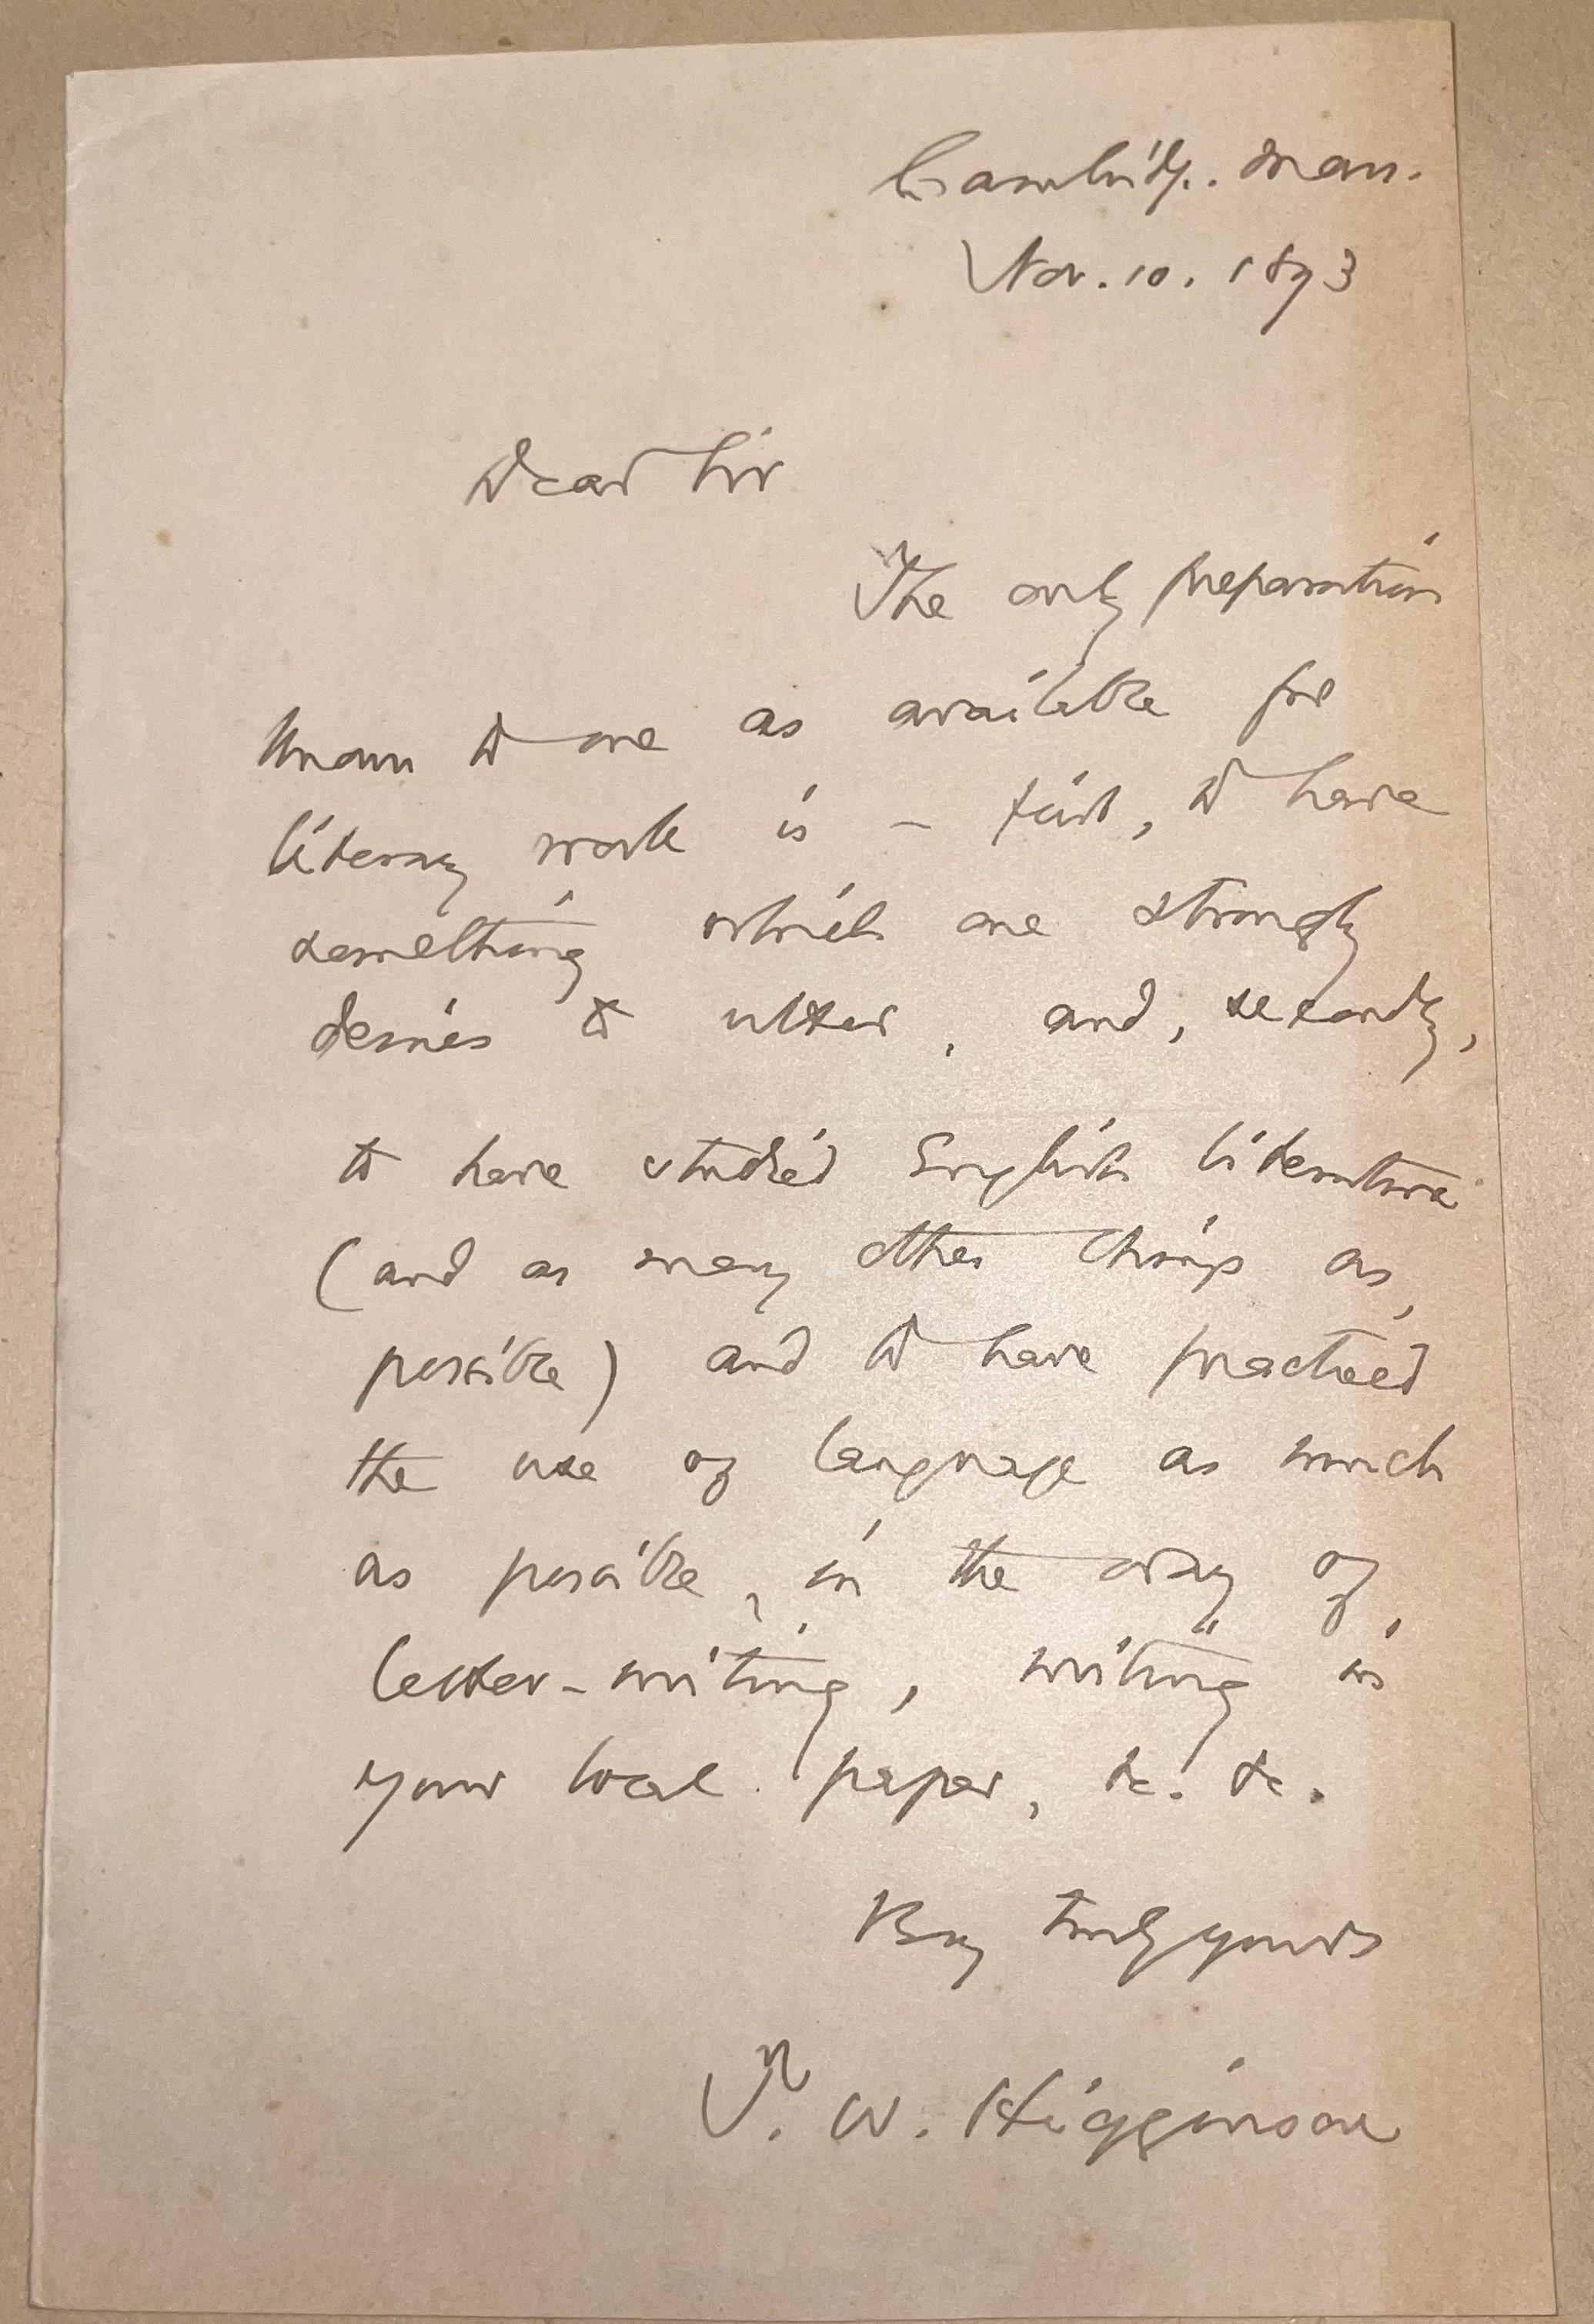 Cambridge. Mass.
Nov. 10. 1893
Dear Sir
The only preparation
known to me as available for
literary work is - first, to have
something which one strongly
desires to utter, and, secondly,
to have studied English literature
(and as many other things as
possible) and to have practised
the use of language as much
as possible, in the way of
letter-writing, writing in
your local paper, &c. &c.
Very truly yours
T. W. Higginson